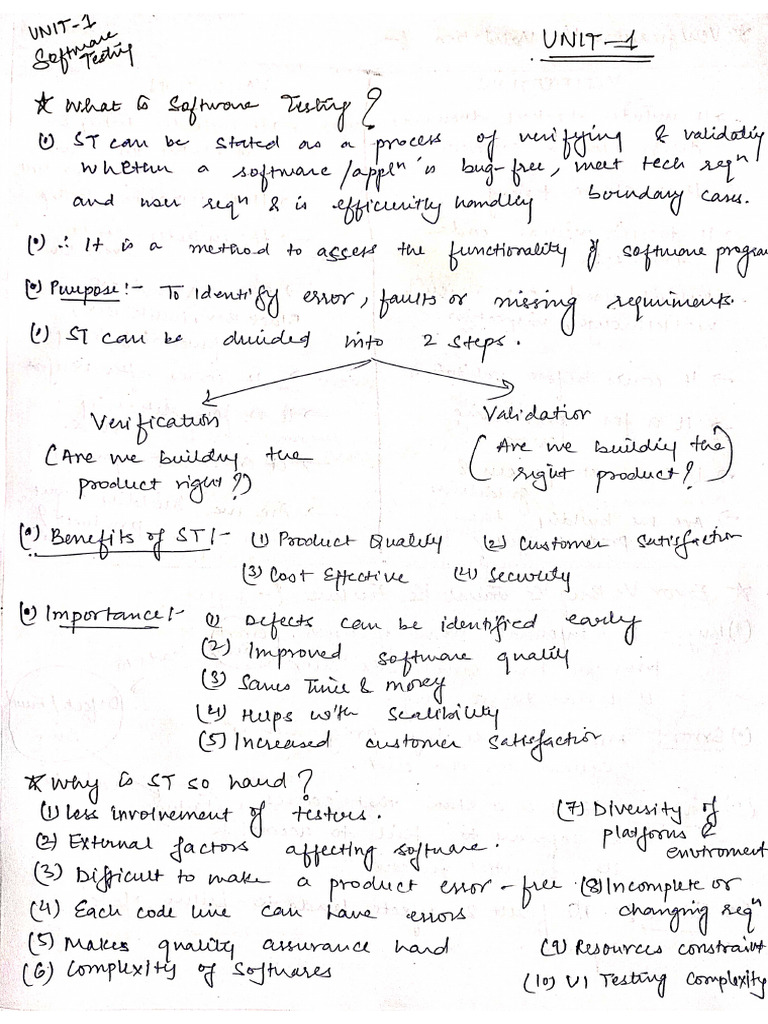 UNIT-1
Software
Testing
UNIT-1
★ What is Software Testing?
(•) ST can be stated as a process of verifying & validating
whether a software/applⁿ is bug-free, meet tech reqⁿ
and user reqⁿ & is efficiently handley boundary cases.
(•) ∴ It is a method to assess the functionality of software program
(•) Purpose:- To identify error, faults or missing requriments.
(•) ST can be divided into 2 steps.
Verification
(Are we building the
product right?)
Validation
(Are we building the
right product?)
(•) Benefits of ST:- (1) Product Quality (2) Customer Satisfaction
(3) Cost Effective (4) Security
(•) Importance:- (1) Defects can be identified early
(2) Improved software quality
(3) Saves Time & money
(4) Helps with Scalibility
(5) Increased customer satisfaction
★ Why is ST so hard?
(1) Less involvement of testers.
(2) External factors affecting software.
(3) Difficult to make a product error-free
(4) Each code line can have errors
(5) Makes quality assurance hard
(6) Complexity of Softwares
(7) Diversity of
platforms &
enviroment
(8) Incomplete or
changing reqⁿ
(9) Resources constraint
(10) UI Testing Complexity